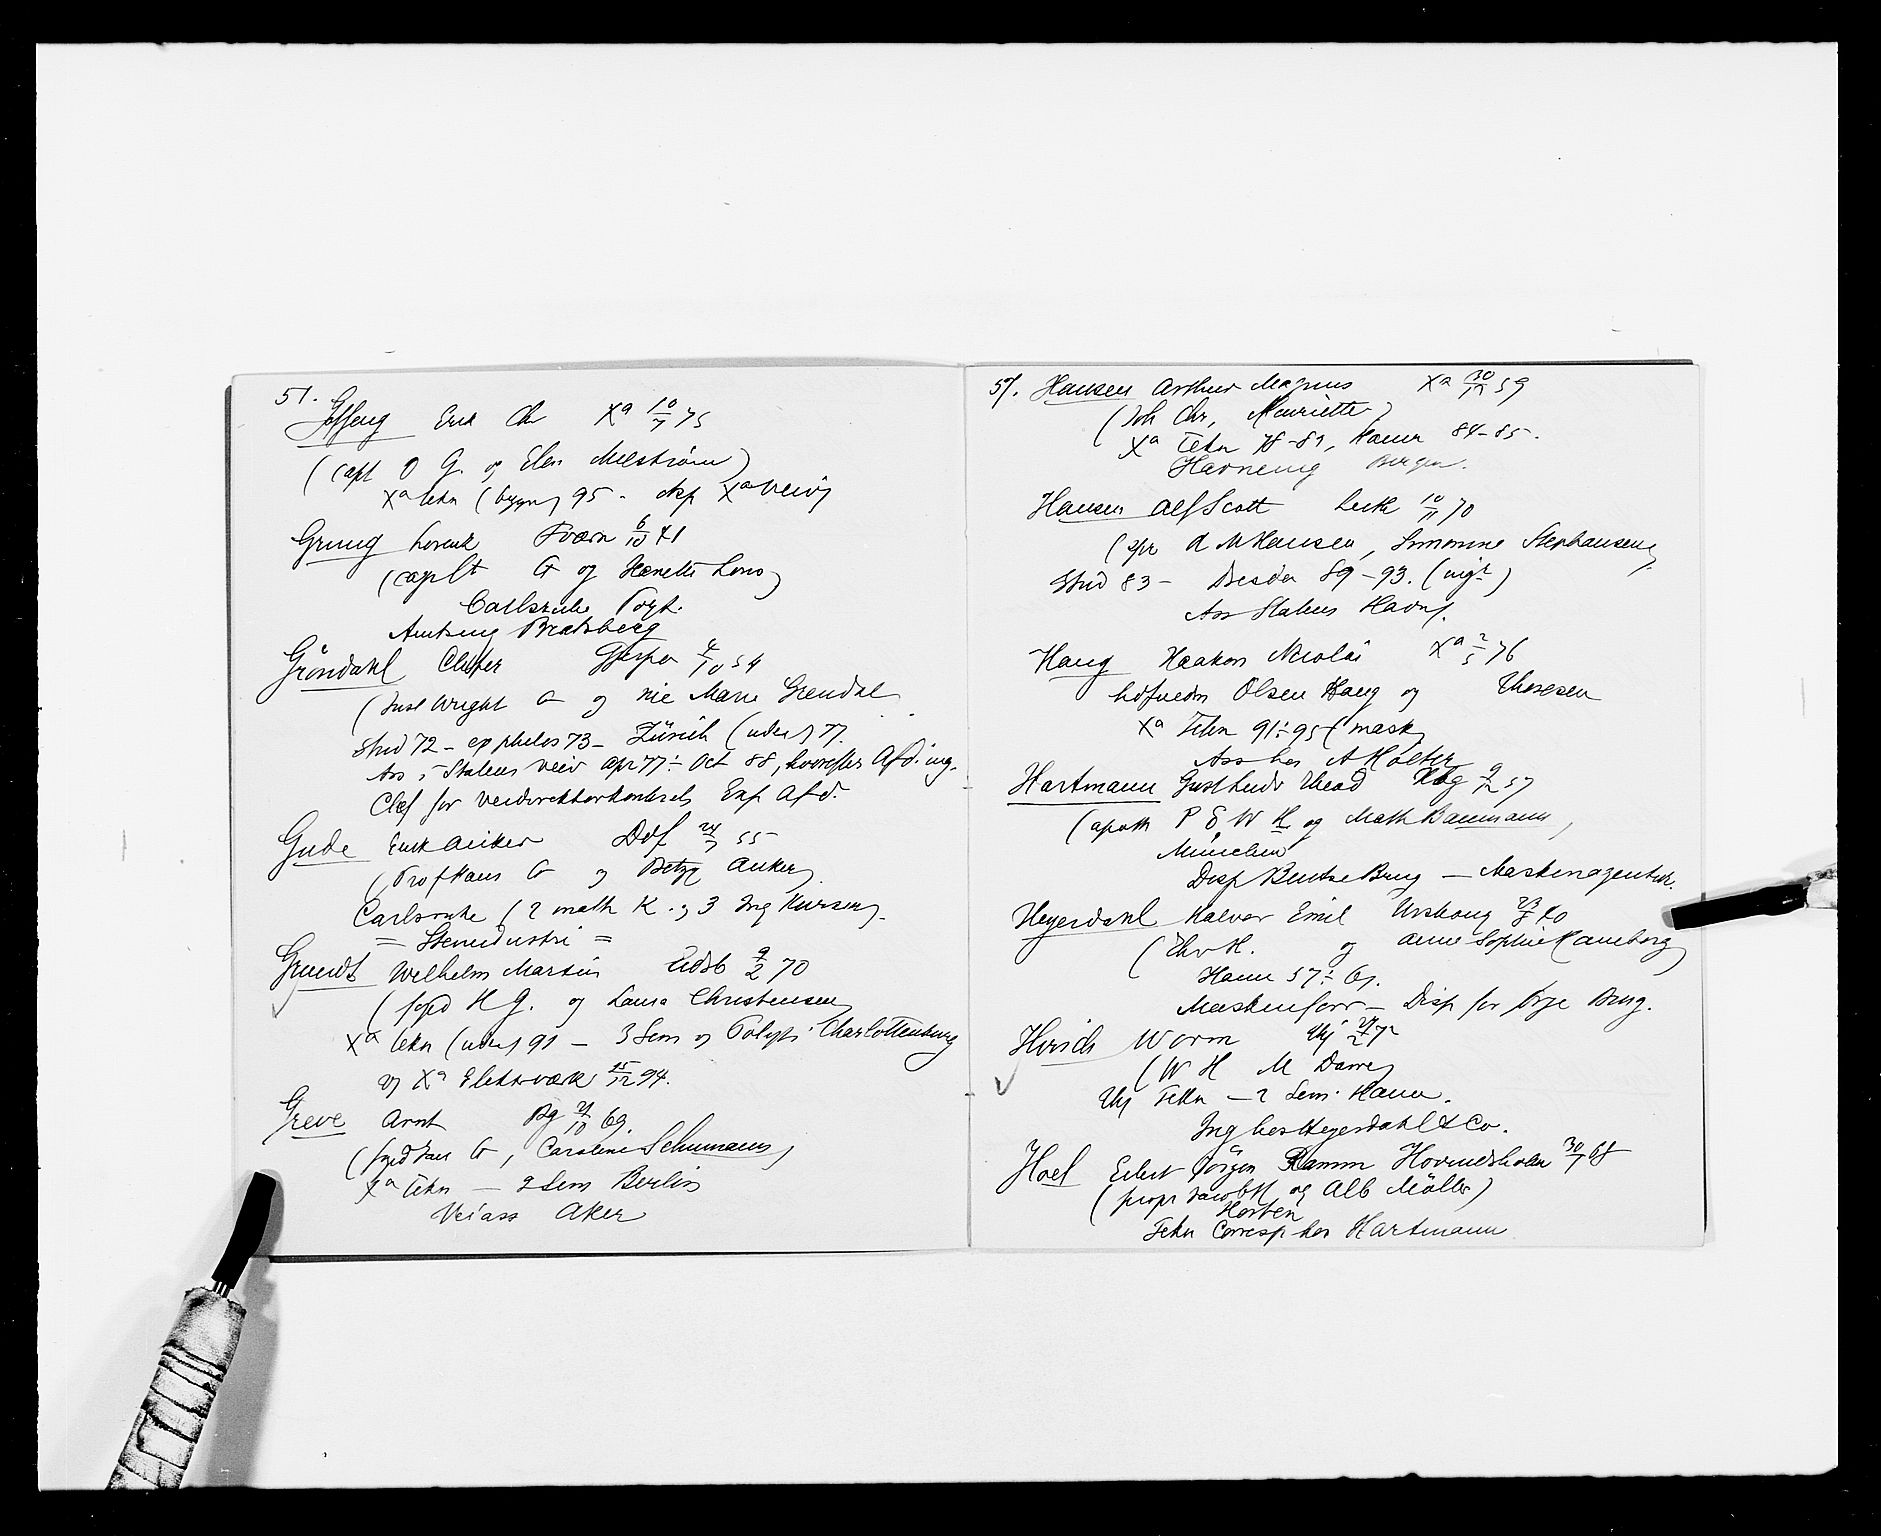 51.
Erik Chr Xa 10/7 75
(capt O G. og Elen Melström)
Xa tekn (bygn) 95 - Xa veiv
Grung Lorentz Sværn 6/10 41
(captlt G og Henrette Lous)
Carlsruhe
Amtsing Bratsberg
Gröndahl Chister Gjerpen 4/10 54
(Just Wright G og nie Marie Grendal
Stud 72 - ex philos 73 - Zürich 77.
Ass i Statens veiv apr 77 ÷ Oct 88, hvorefter Afd. ing.
Chef for Veidirektørkontorets Exp Afd.
Gude Erik Anker Ddf 24/7 55
(Prof Hans G og Betzy Anker)
Carlsruhe (2 math K. og 3 Ing Kurser)
= Stenindustri =
Grundt Wilhelm Martin Eidsb 9/2 70
(foged H G. og Laura Christensen
Xa tekn 91 - 3 Sem og Polyt i Charlottenburg
og Xa Elektrværk 15/12 94.
Greve Arnt Bg 21/10 69.
(foged G, Caroline Schumann)
Xa Tekn - 2 Sem Berlin
Veiass Aker
51. Hansen Arthur Magnus Xa 30/12 59
(Joh Chr, Henriette)
Xa Tekn 78-81, Hanver 84-85.
Havneing Bergen.
Hansen Alf Scott Leith 10/11 70
(A M Hansen, Simonine Stephansen)
Stud 83 - Dresden 89-93. (ing)
Ass Statens Havnv.
Haug Haakon Nicolai Xa 2/5 76
Olsen Haug og Thoresen
Xa Tekn 91÷95 (mask)
Ass hos A Holter
Hartmann Gust Ludv Thead Kbg 9/2 57
(apoth P E W H. og Math Baumann)
München
Disp Bentse Brug - Maskinagentur.
Heyerdahl Halvor Emil Urskoug 23/8 40
(Thv H. og Anne Sophie Hameborg)
Hann 57÷61.
Maskinforr - Disp for Brug.
Hirsch Worm Thj 24/2 72
(W H M Dame)
Thj Tekn - 2 Sem. Hann.
Ing hos Heyerdahl & Co.
Hoel Eilert Jörgen Ramm Hovindsholm 30/7 68
(propr Jacob H og Alb Möller)
Horten
Tekn Corresp. hos Hartmann